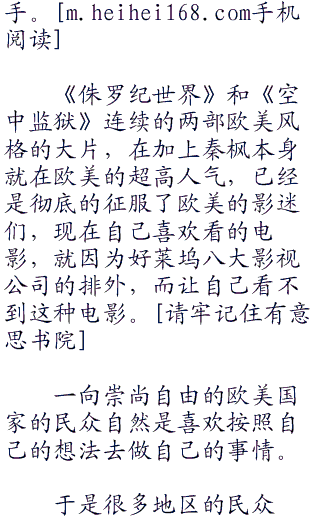 手。[m.heihei168.com手机
阅读]
《侏罗纪世界》和《空
中监狱》连续的两部欧美风
格的大片，在加上秦枫本身
就在欧美的超高人气，已经
是彻底的征服了欧美的影迷
们，现在自己喜欢看的电
影，就因为好莱坞八大影视
公司的排外，而让自己看不
到这种电影。[请牢记住有意
思书院]
一向崇尚自由的欧美国
家的民众自然是喜欢按照自
己的想法去做自己的事情。
于是很多地区的民众